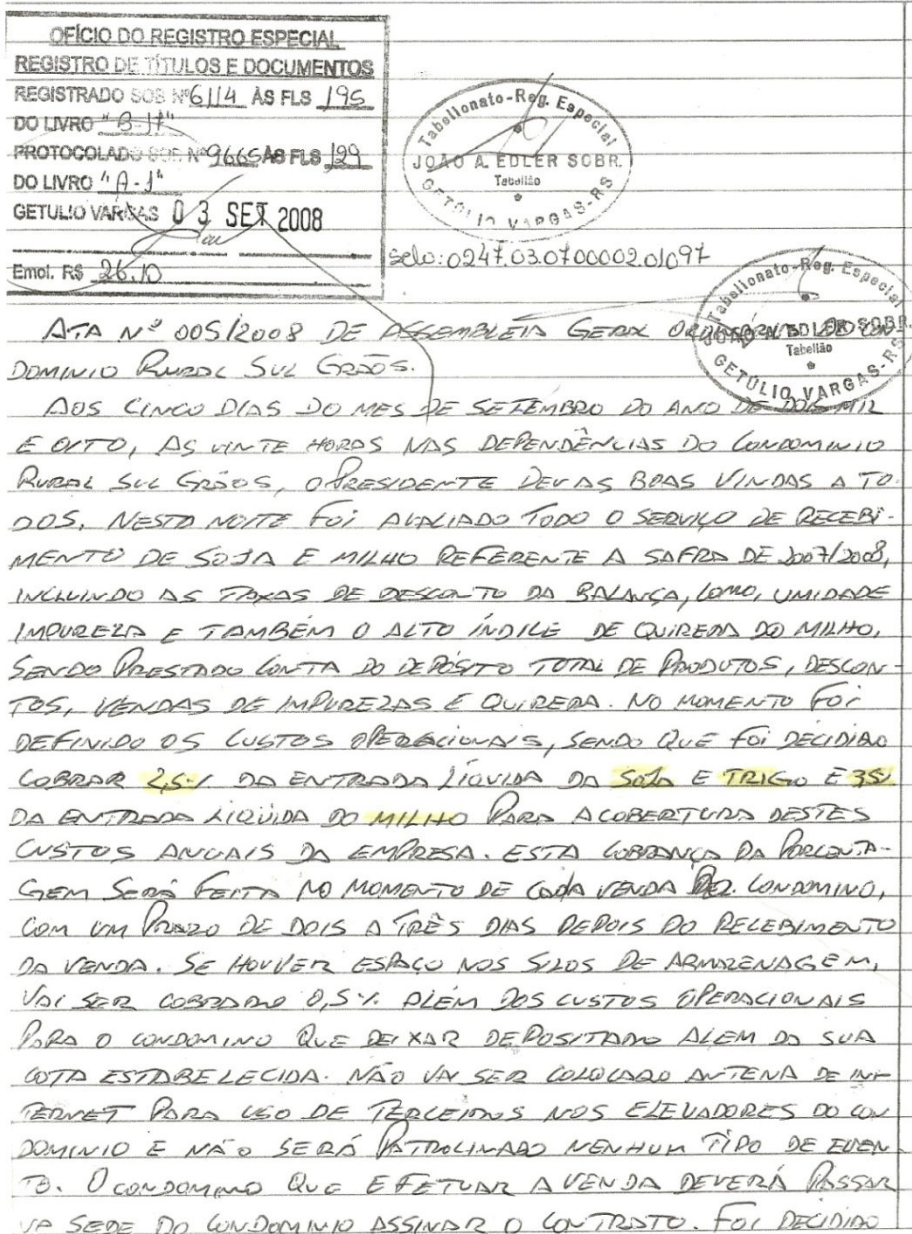 OFÍCIO DO REGISTRO ESPECIAL
REGISTRO DE TÍTULOS E DOCUMENTOS
REGISTRADO SOB Nº 6114 ÀS FLS 195
DO LIVRO
PROTOCOLADO SOB Nº 9665 AS FLS 129
DO LIVRO "A-1"
GETULIO VARGAS 03 SET 2008
Emol. R$ 26,10
Tabelionato-Reg. Especial
JOÃO A. EDLER SOBR.
Tabelião
GETÚLIO VARGAS-RS
Selo: 0247.03.0700002.01097
Tabelionato-Reg. Especial
JOÃO A. EDLER SOBR.
Tabelião
GETÚLIO VARGAS-RS
ATA Nº 005/2008 DE ASSEMBLEIA GERAL ORDINÁRIA DO CON-
DOMINIO RURAL SUL GRÃOS.
AOS CINCO DIAS DO MES DE SETEMBRO DO ANO DE DOIS MIL
E OITO, AS VINTE HORAS NAS DEPENDÊNCIAS DO CONDOMINIO
RURAL SUL GRÃOS, O PRESIDENTE DEU AS BOAS VINDAS A TO-
DOS, NESTA NOITE FOI AVALIADO TODO O SERVIÇO DE RECEBI-
MENTO DE SOJA E MILHO REFERENTE A SAFRA DE 2007/2008,
INCLUINDO AS TAXAS DE DESCONTO DA BALANÇA, COMO, UMIDADE
IMPUREZA E TAMBÉM O ALTO ÍNDICE DE QUIRERA DO MILHO,
SENDO PRESTADO CONTA DO DEPÓSITO TOTAL DE PRODUTOS, DESCON-
TOS, VENDAS DE IMPUREZAS E QUIRERA. NO MOMENTO FOI
DEFINIDO OS CUSTOS OPERACIONAIS, SENDO QUE FOI DECIDIDO
COBRAR 2,5% DA ENTRADA LÍQUIDA DA SOJA E TRIGO E 3,5%
DA ENTRADA LIQÜIDA DO MILHO PARA A COBERTURA DESTES
CUSTOS ANUAIS DA EMPRESA. ESTA COBRANÇA DA PORCENTA-
GEM SERÁ FEITA NO MOMENTO DE CADA VENDA POR CONDOMINO,
COM UM PRAZO DE DOIS A TRÊS DIAS DEPOIS DO RECEBIMENTO
DA VENDA. SE HOUVER ESPAÇO NOS SILOS DE ARMAZENAGEM,
VAI SER COBRADO 0,5% ALÉM DOS CUSTOS OPERACIONAIS
PARA O CONDOMINO QUE DEIXAR DEPOSITADO ALEM DA SUA
COTA ESTABELECIDA. NÃO VAI SER COLOCADO ANTENA DE IN-
TERNET PARA USO DE TERCEIROS NOS ELEVADORES DO CON
DOMINIO E NÃO SERÁ PATROLINADO NENHUM TIPO DE EVEN-
TO. O CONDOMINO QUE EFETUAR A VENDA DEVERÁ PASSAR
NA SEDE DO CONDOMINIO ASSINAR O CONTRATO. FOI DECIDIDO